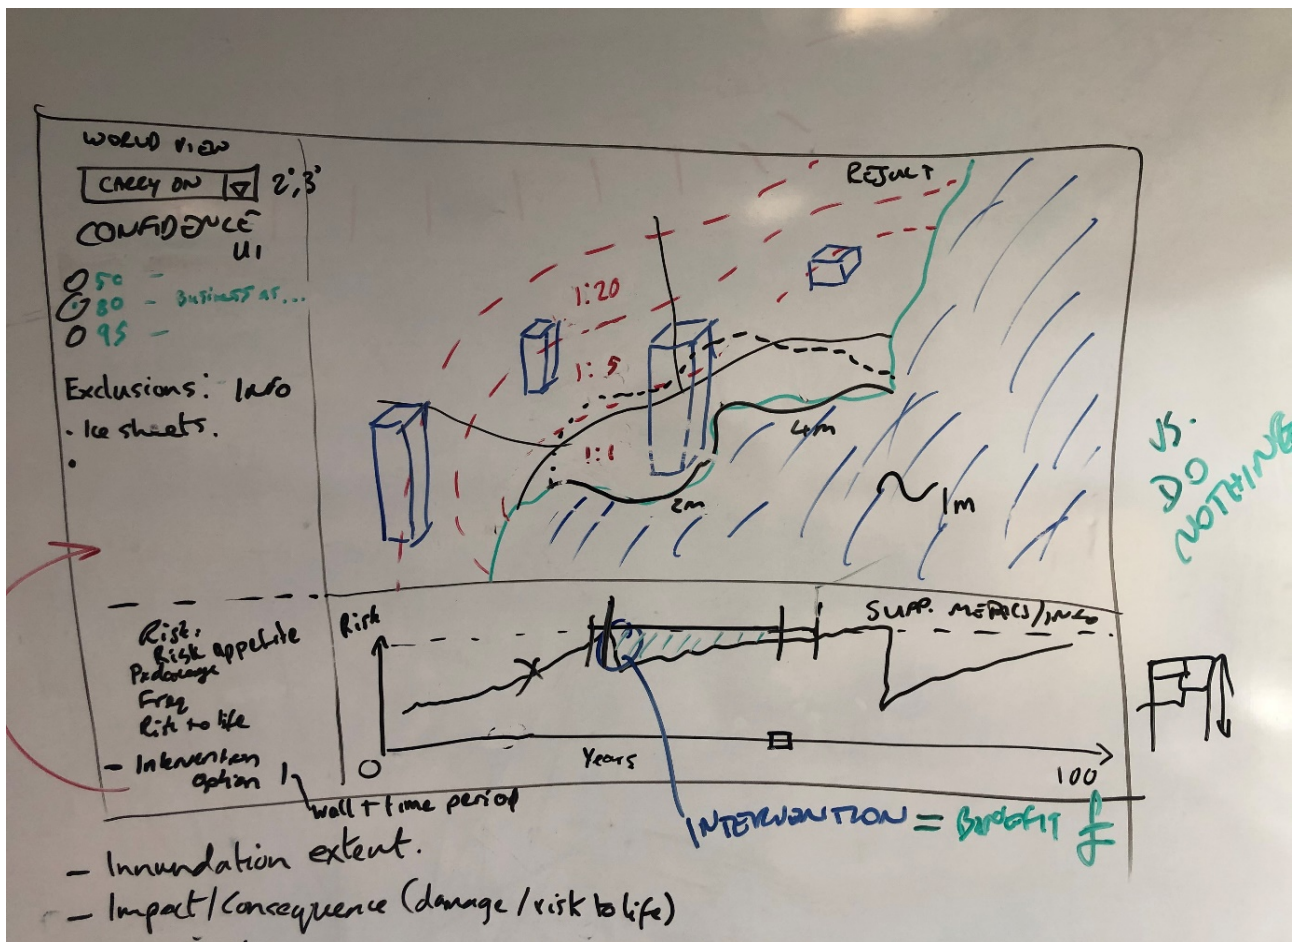 WORLD VIEW
CARRY ON 2°, 3°
CONFIDENCE
UI
50 -
80 - Business as...
95 -
Exclusions: Info
· Ice sheets.
·
RESULT
1:20
1:5
1:1
2m
4m
1m
VS.
DO
NOTHING
Risk.
Risk appetite
Freq
Risk to life
- Intervention
option 1
wall + time period
Risk
SUPP. METRICS/INFO
0
Years
100
INTERVENTION = BENEFIT £
- Innundation extent.
- Impact/Consequence (damage/risk to life)